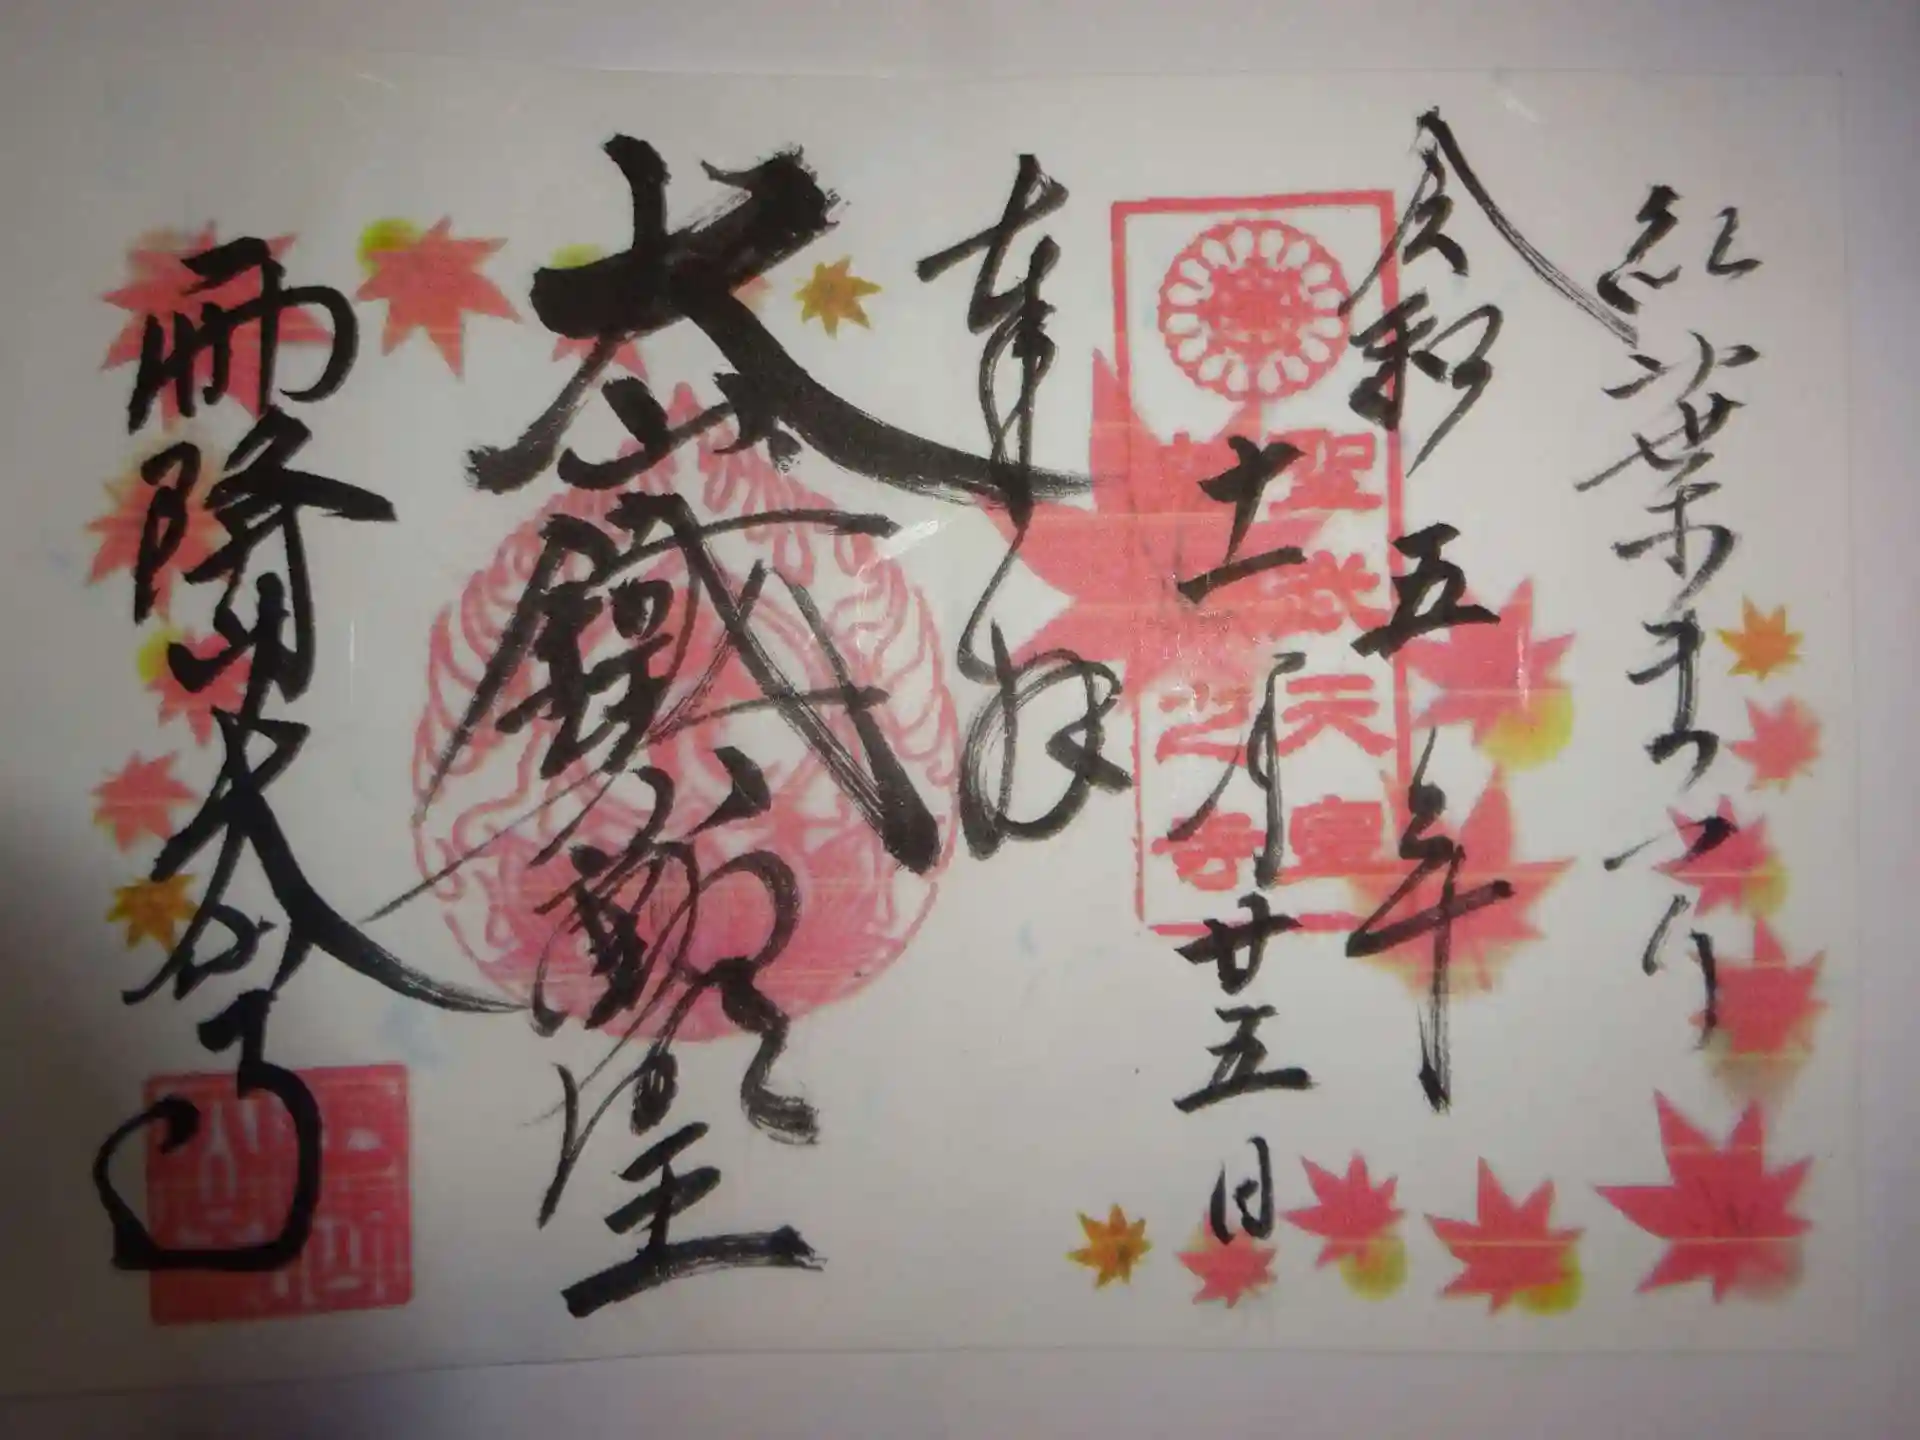 紅葉まつり
令和五年
十一月廿五日
聖武天皇
勅願之寺
奉拝
大山鐵不動明王
雨降山大山寺